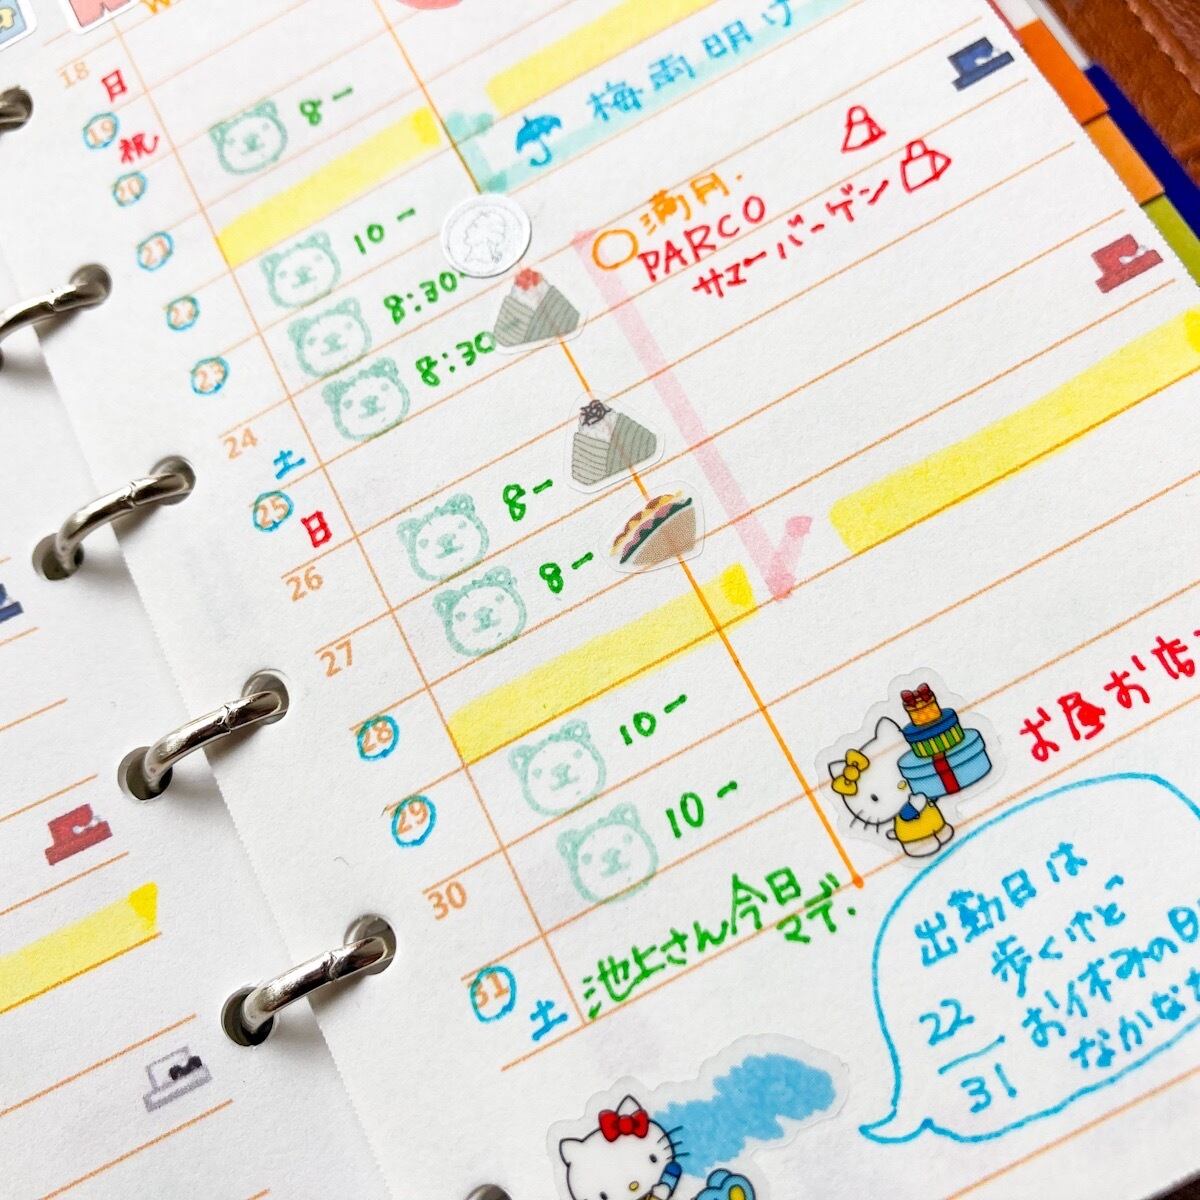 18 日
19 祝 8-
梅雨明け
20
21 10-
満月.
PARCO
サマーバーゲン
22 8:30-
23 8:30
24 土 8-
25 日 8-
26
27 10-
28 10-
29
30
31 土
池上さん今日
マデ.
お昼お店
出勤日は
歩くけど
お休みの日
なかなか
22
31